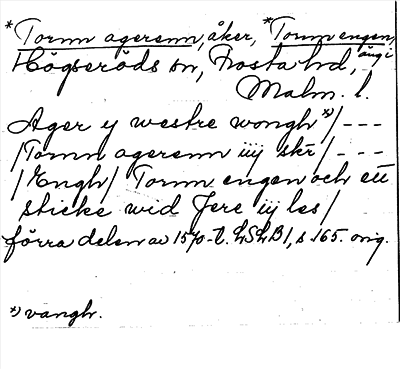 *Tormn agerenn, åker, *Tormn engen, äng i
Högseröds sn, Frosta hd,
Malm. l.
Ager y westre wongh x)/ ---
/Tormn agerenn iiij skr/ ---
/Engh/ Tormn engen och ett
sticke wid Jere iij les/
förra delen av 1570-t. LSLB1, s. 165. orig.
x) vangh.